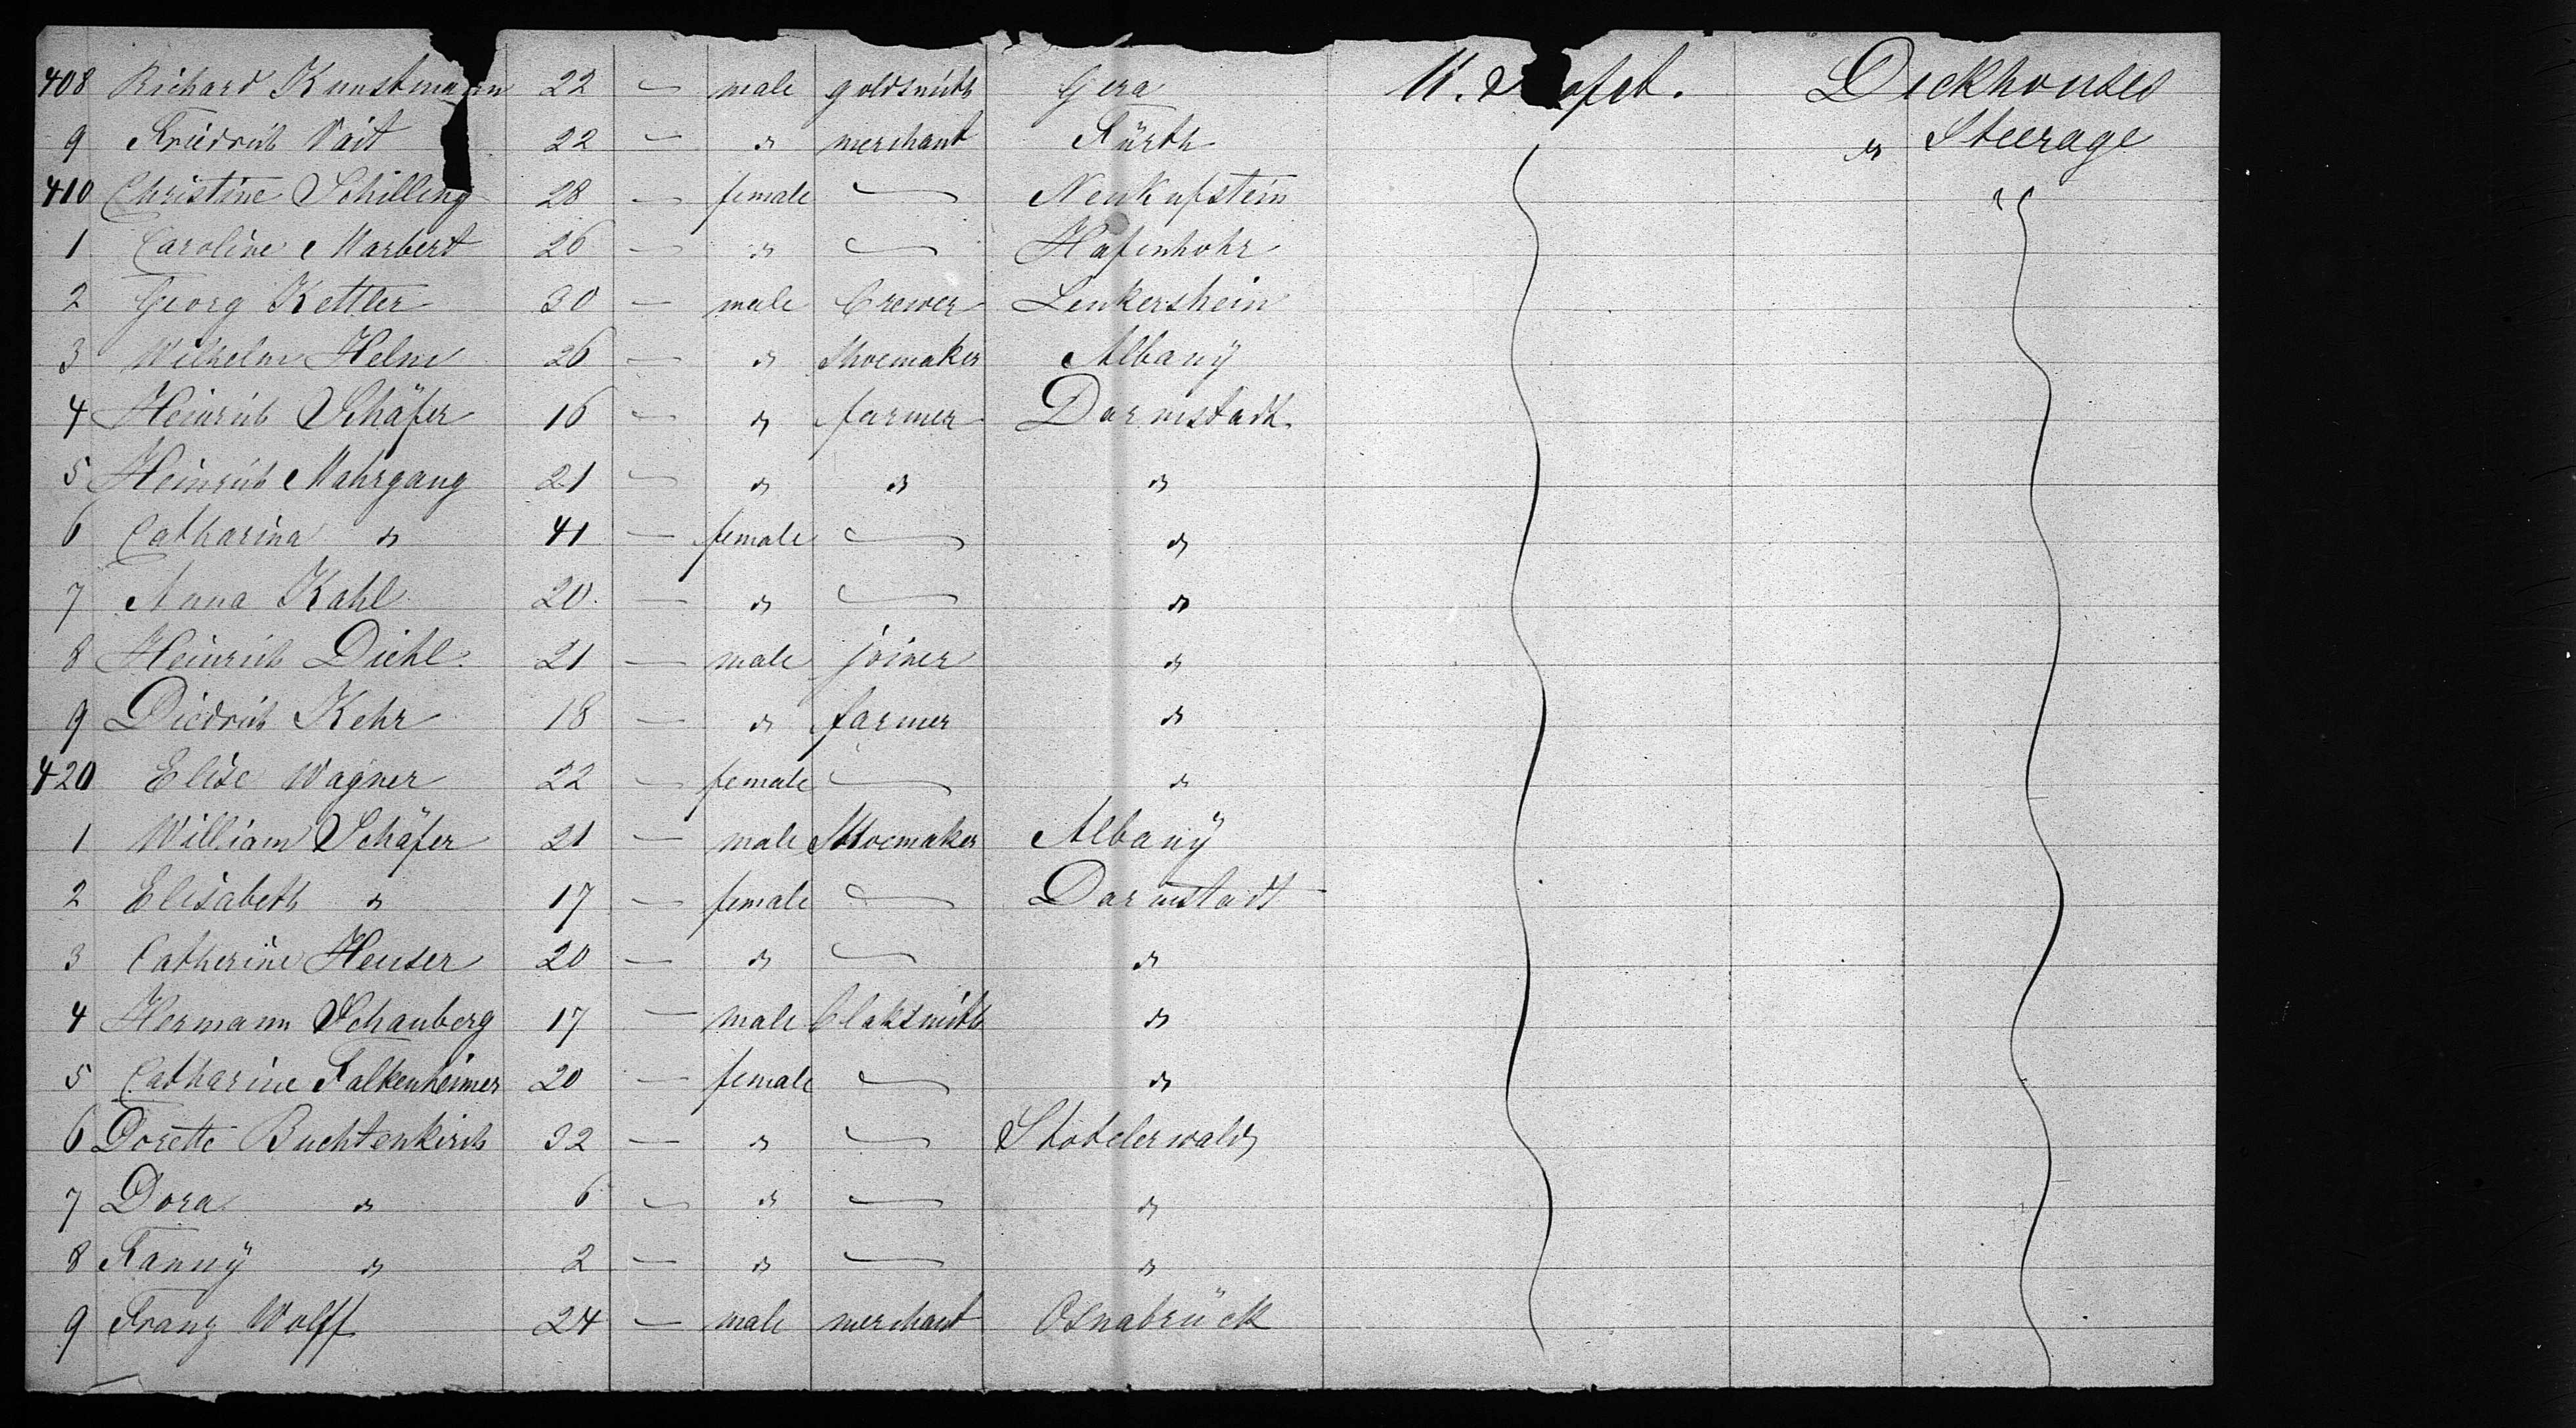 408 Richard Kunstmann 22 — male goldsmith Gera U. St. of Deckhouses
9 Friedrich Vait 22 — " merchant Fürth " Steerage
410 Christine Schilling 28 — female — Neukupstein "
1 Caroline Marbert 26 — " — Hafenhohr
2 Georg Kettler 30 — male brewer Lenkershein
3 Wilhelm Helm 26 — " Shoemaker Albanÿ
4 Heinrich Schäfer 16 — " farmer Darmstadt
5 Heinrich Mahrgang 21 — " " "
6 Catharina " 41 — female — "
7 Anna Kahl 20 — " — "
8 Heinrich Diehl 21 — male joiner "
9 Diedrich Kehr 18 — " farmer "
420 Elise Wagner 22 — female — "
1 William Schäfer 21 — male Shoemaker Albanÿ
2 Elisabeth " 17 — female — Darmstadt
3 Catherine Heuser 20 — " — "
4 Hermann Schauberg 17 — male blaksmith "
5 Catharine Falkenheimer 20 — female — "
6 Dorette Buchtenkirch 32 — " — Stotelerwald
7 Dora " 6 — " — "
8 Fannÿ " 2 — " — "
9 Franz Wolff 24 — male merchant Osnabrück